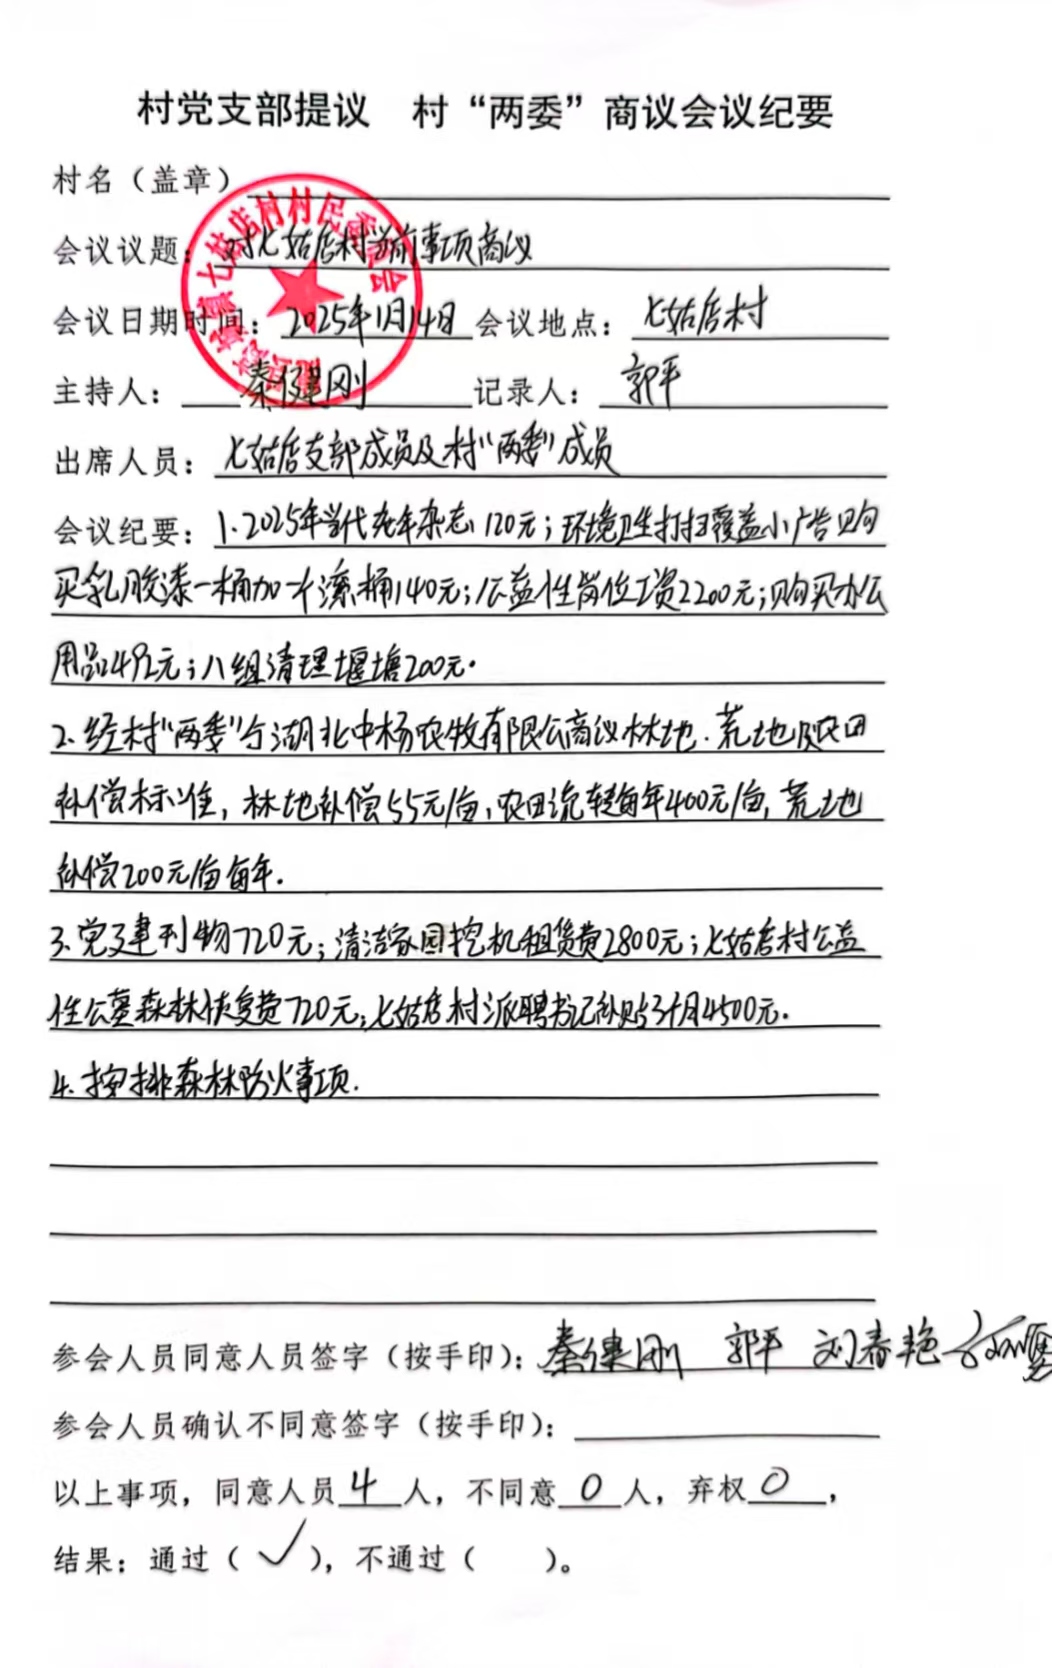 村党支部提议 村“两委”商议会议纪要
村名（盖章）
七姑店村村民委员会
会议议题：对七姑店村当前事项商议
会议日期时间：2025年1月14日 会议地点：七姑店村
主持人：秦健刚 记录人：郭平
出席人员：七姑店支部成员及村“两委”成员
会议纪要：1.2025年当代老年杂志120元；环境卫生打扫覆盖小广告购
买乳胶漆一桶加一个滚桶140元；公益性岗位工资2200元；购买办公
用品492元；八组清理堰塘200元.
2.经村“两委”与湖北中杨农牧有限公商议林地.荒地及农田
补偿标准，林地补偿55元/亩，农田流转每年400元/亩，荒地
补偿200元/亩每年.
3.党建刊物720元；清洁家园挖机租赁费2800元；七姑店村公益
性公墓森林恢复费720元；七姑店村派聘书记补贴3个月4500元.
4.按排森林防火事项.
参会人员同意人员签字（按手印）：秦健刚 郭平 刘春艳
参会人员确认不同意签字（按手印）：
以上事项，同意人员4人，不同意0人，弃权0，
结果：通过（✓），不通过（ ）。